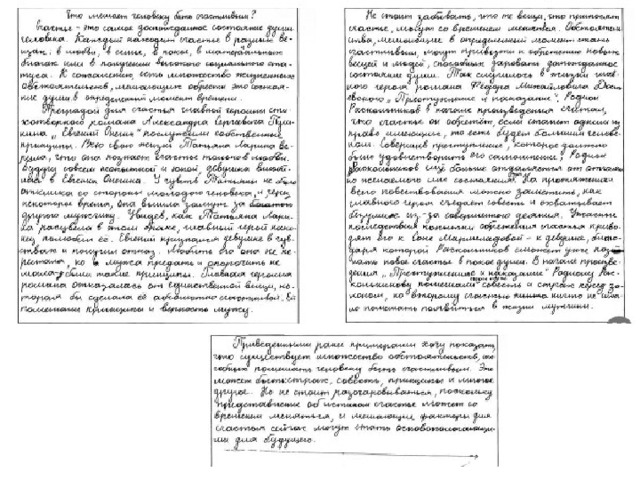 Что мешает человеку быть счастливым?
Счастье - это самое долгожданное состояние души
человека. Каждый находит счастье в разных ве-
щах: в любви, в семье, в покое, в материальных
благах или в получении высокого социального ста-
туса. К сожалению, есть множество жизненных
обстоятельств, мешающих обрести это состоя-
ние души в определенный момент времени.
Преградой для счастья главной героини сти-
хотворного романа Александра Сергеевича Пуш-
кина „Евгений Онегин" послужили собственные
принципы. Всю свою жизнь Татьяна Ларина ве-
рила, что она познает счастье только в любви.
Будучи совсем неопытной и юной девушка влюби-
лась в Евгения Онегина. Чувства Татьяны не были
взаимны со стороны молодого человека, и через
некоторое время, она вышла замуж за
другого мужчину. Увидев, как Татьяна Лари-
на расцвела в этом браке, главный герой нако-
нец полюбил её. Евгений признался девушке в чув-
ствах и получил отказ. Любить его она не пе-
рестала, но и мужа предать и опорочить не
могла свои такие принципы. Главная героиня
романа отказалась от единственной вещи, ко-
торая бы сделала её абсолютно счастливой. Ей
помешали приличия и верность мужу.
Не стоит забывать, что те вещи, что приносят
счастье, могут со временем меняться. Обстоятель-
ства, мешающие в определенный момент стать
счастливым, могут привести к обретению новых
вещей и людей, способных даровать долгожданное
состояние души. Так случилось в жизни глав-
ного героя романа Фёдора Михайловича Дос-
евского „Преступление и наказание". Родион
Раскольников в начале произведения считал,
что счастье он обретёт, если станет одним из
право имеющих, то есть будет большим челове-
ком. Совершив преступление, которое должно
было удовлетворить его самолюбие, Родион
Раскольников ещё больше отдалился от столь
но желаемого им сознания. На протяжении
всего повествования можно заметить, как
главного героя съедает совесть и охватывает
безумие из-за совершенного деяния. Ужасные
последствия попытки обретения счастья приво-
дят его к Соне Мармеладовой - к девушке, благо-
даря которой Раскольников сможет уже поз-
нать новое счастье в покое души. В начале произве-
дения „Преступление и наказание" Родиону Рас-
кольникову помешали совесть и страх перед за-
коном, но второму счастью ничто не мог-
ло помешать появиться в жизни мужчины.
Приведенными ранее примерами хочу показать,
что существует множество обстоятельств, спо-
собных помешать человеку быть счастливым. Это
может быть страх, совесть, принципы и многое
другое. Но не стоит разочаровываться, поскольку
представление об истинном счастье может со
временем меняться, и мешающие факторы для
счастья сейчас могут стать основополагающи-
ми для будущего.